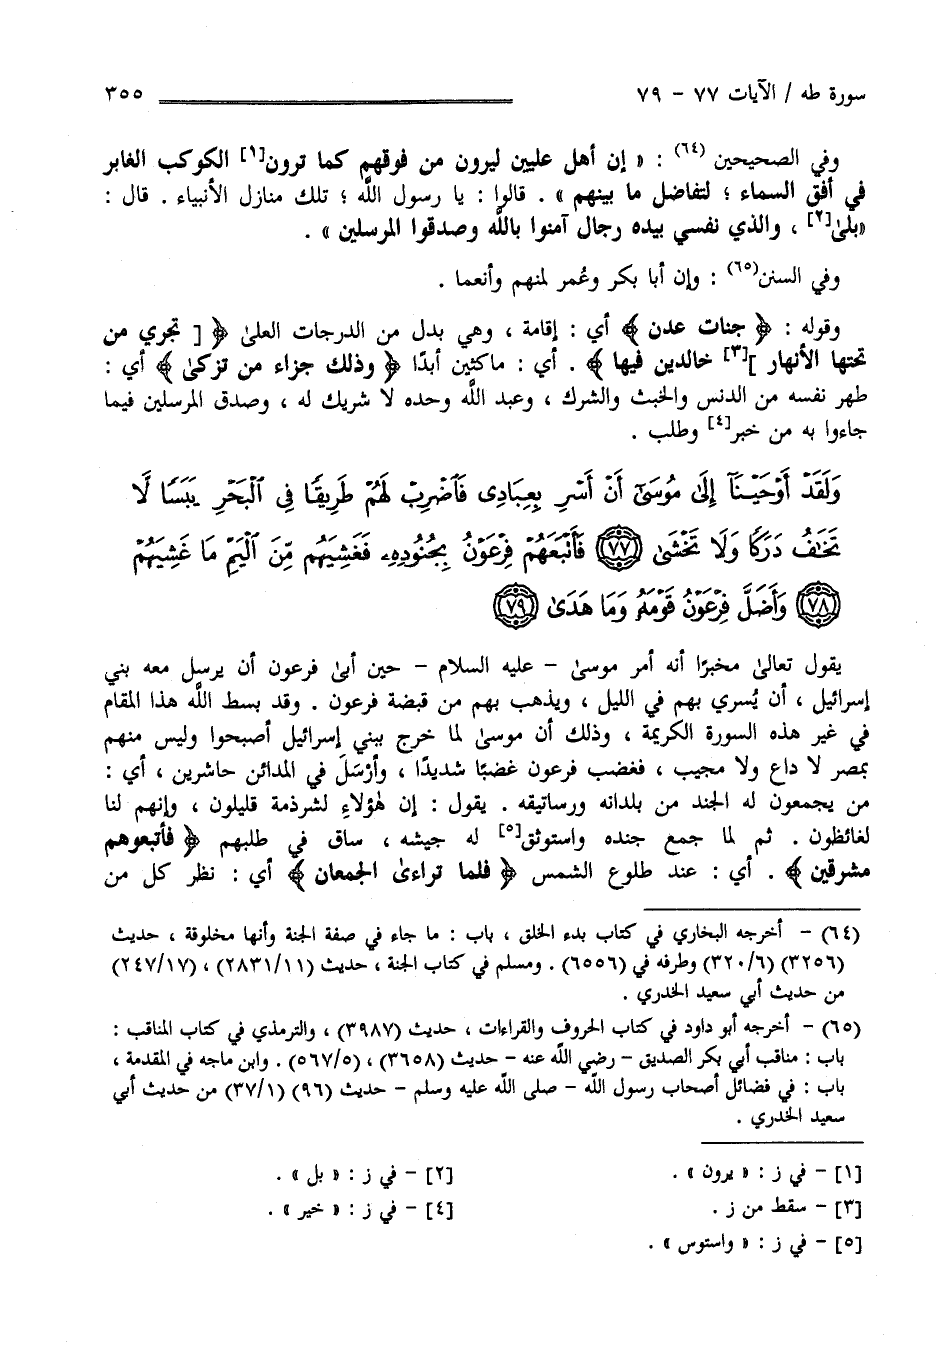 سورة طه / الآيات ٧٧ - ٧٩ ٣٥٥
وفي الصحيحين (٦٤) : « إن أهل عليين ليرون من فوقهم كما ترون[١] الكوكب الغابر
في أفق السماء ؛ لتفاضل ما بينهم » . قالوا : يا رسول اللَّه ؛ تلك منازل الأنبياء . قال :
«بلىٰ[٢] ، والذي نفسي بيده رجال آمنوا باللَّه وصدقوا المرسلين » .
وفي السنن(٦٥) : وإن أبا بكر وعُمر لمنهم وأنعما .
وقوله : ﴿ جنات عدن ﴾ أي : إقامة ، وهي بدل من الدرجات العلىٰ ﴿ [ تجري من
تحتها الأنهار ][٣] خالدين فيها ﴾ . أي : ماكثين أبدًا ﴿ وذلك جزاء من تزكىٰ ﴾ أي :
طهر نفسه من الدنس والخبث والشرك ، وعبد اللَّه وحده لا شريك له ، وصدق المرسلين فيما
جاءوا به من خبر[٤] وطلب .
وَلَقَدْ أَوْحَيْنَآ إِلَىٰ مُوسَىٰٓ أَنْ أَسْرِ بِعِبَادِى فَٱضْرِبْ لَهُمْ طَرِيقًا فِى ٱلْبَحْرِ يَبَسًا لَّا
تَخَٰفُ دَرَكًا وَلَا تَخْشَىٰ ﴿٧٧﴾ فَأَتْبَعَهُمْ فِرْعَوْنُ بِجُنُودِهِۦ فَغَشِيَهُم مِّنَ ٱلْيَمِّ مَا غَشِيَهُمْ
﴿٧٨﴾ وَأَضَلَّ فِرْعَوْنُ قَوْمَهُۥ وَمَا هَدَىٰ ﴿٧٩﴾
يقول تعالىٰ مخبرًا أنه أمر موسىٰ - عليه السلام - حين أبىٰ فرعون أن يرسل معه بني
إسرائيل ، أن يُسري بهم في الليل ، ويذهب بهم من قبضة فرعون . وقد بسط اللَّه هذا المقام
في غير هذه السورة الكريمة ، وذلك أن موسىٰ لما خرج ببني إسرائيل أصبحوا وليس منهم
بمصر لا داع ولا مجيب ، فغضب فرعون غضبًا شديدًا ، وأرْسَلَ في المدائن حاشرين ، أي :
من يجمعون له الجند من بلدانه ورساتيقه . يقول : إن هٰؤلاءِ لشرذمة قليلون ، وإنهم لنا
لغائظون . ثم لما جمع جنده واستوثق[٥] له جيشه ، ساق في طلبهم ﴿ فأتبعوهم
مشرقين ﴾ . أي : عند طلوع الشمس ﴿ فلما تراءىٰ الجمعان ﴾ أي : نظر كل من
(٦٤) - أخرجه البخاري في كتاب بدء الخلق ، باب : ما جاء في صفة الجنة وأنها مخلوقة ، حديث
(٣٢٥٦) (٣٢٠/٦) وطرفه في (٦٥٥٦) . ومسلم في كتاب الجنة ، حديث (٢٨٣١/١١) ، (٢٤٧/١٧)
من حديث أبي سعيد الخدري .
(٦٥) - أخرجه أبو داود في كتاب الحروف والقراءات ، حديث (٣٩٨٧) ، والترمذي في كتاب المناقب :
باب : مناقب أبي بكر الصديق - رضي اللَّه عنه - حديث (٣٦٥٨) ، (٥٦٧/٥) . وابن ماجه في المقدمة ،
باب : في فضائل أصحاب رسول اللَّه - صلى اللَّه عليه وسلم - حديث (٩٦) (٣٧/١) من حديث أبي
سعيد الخدري .
[١] - في ز : « يرون » . [٢] - في ز : « بل » .
[٣] - سقط من ز . [٤] - في ز : « خير » .
[٥] - في ز : « واستوس » .